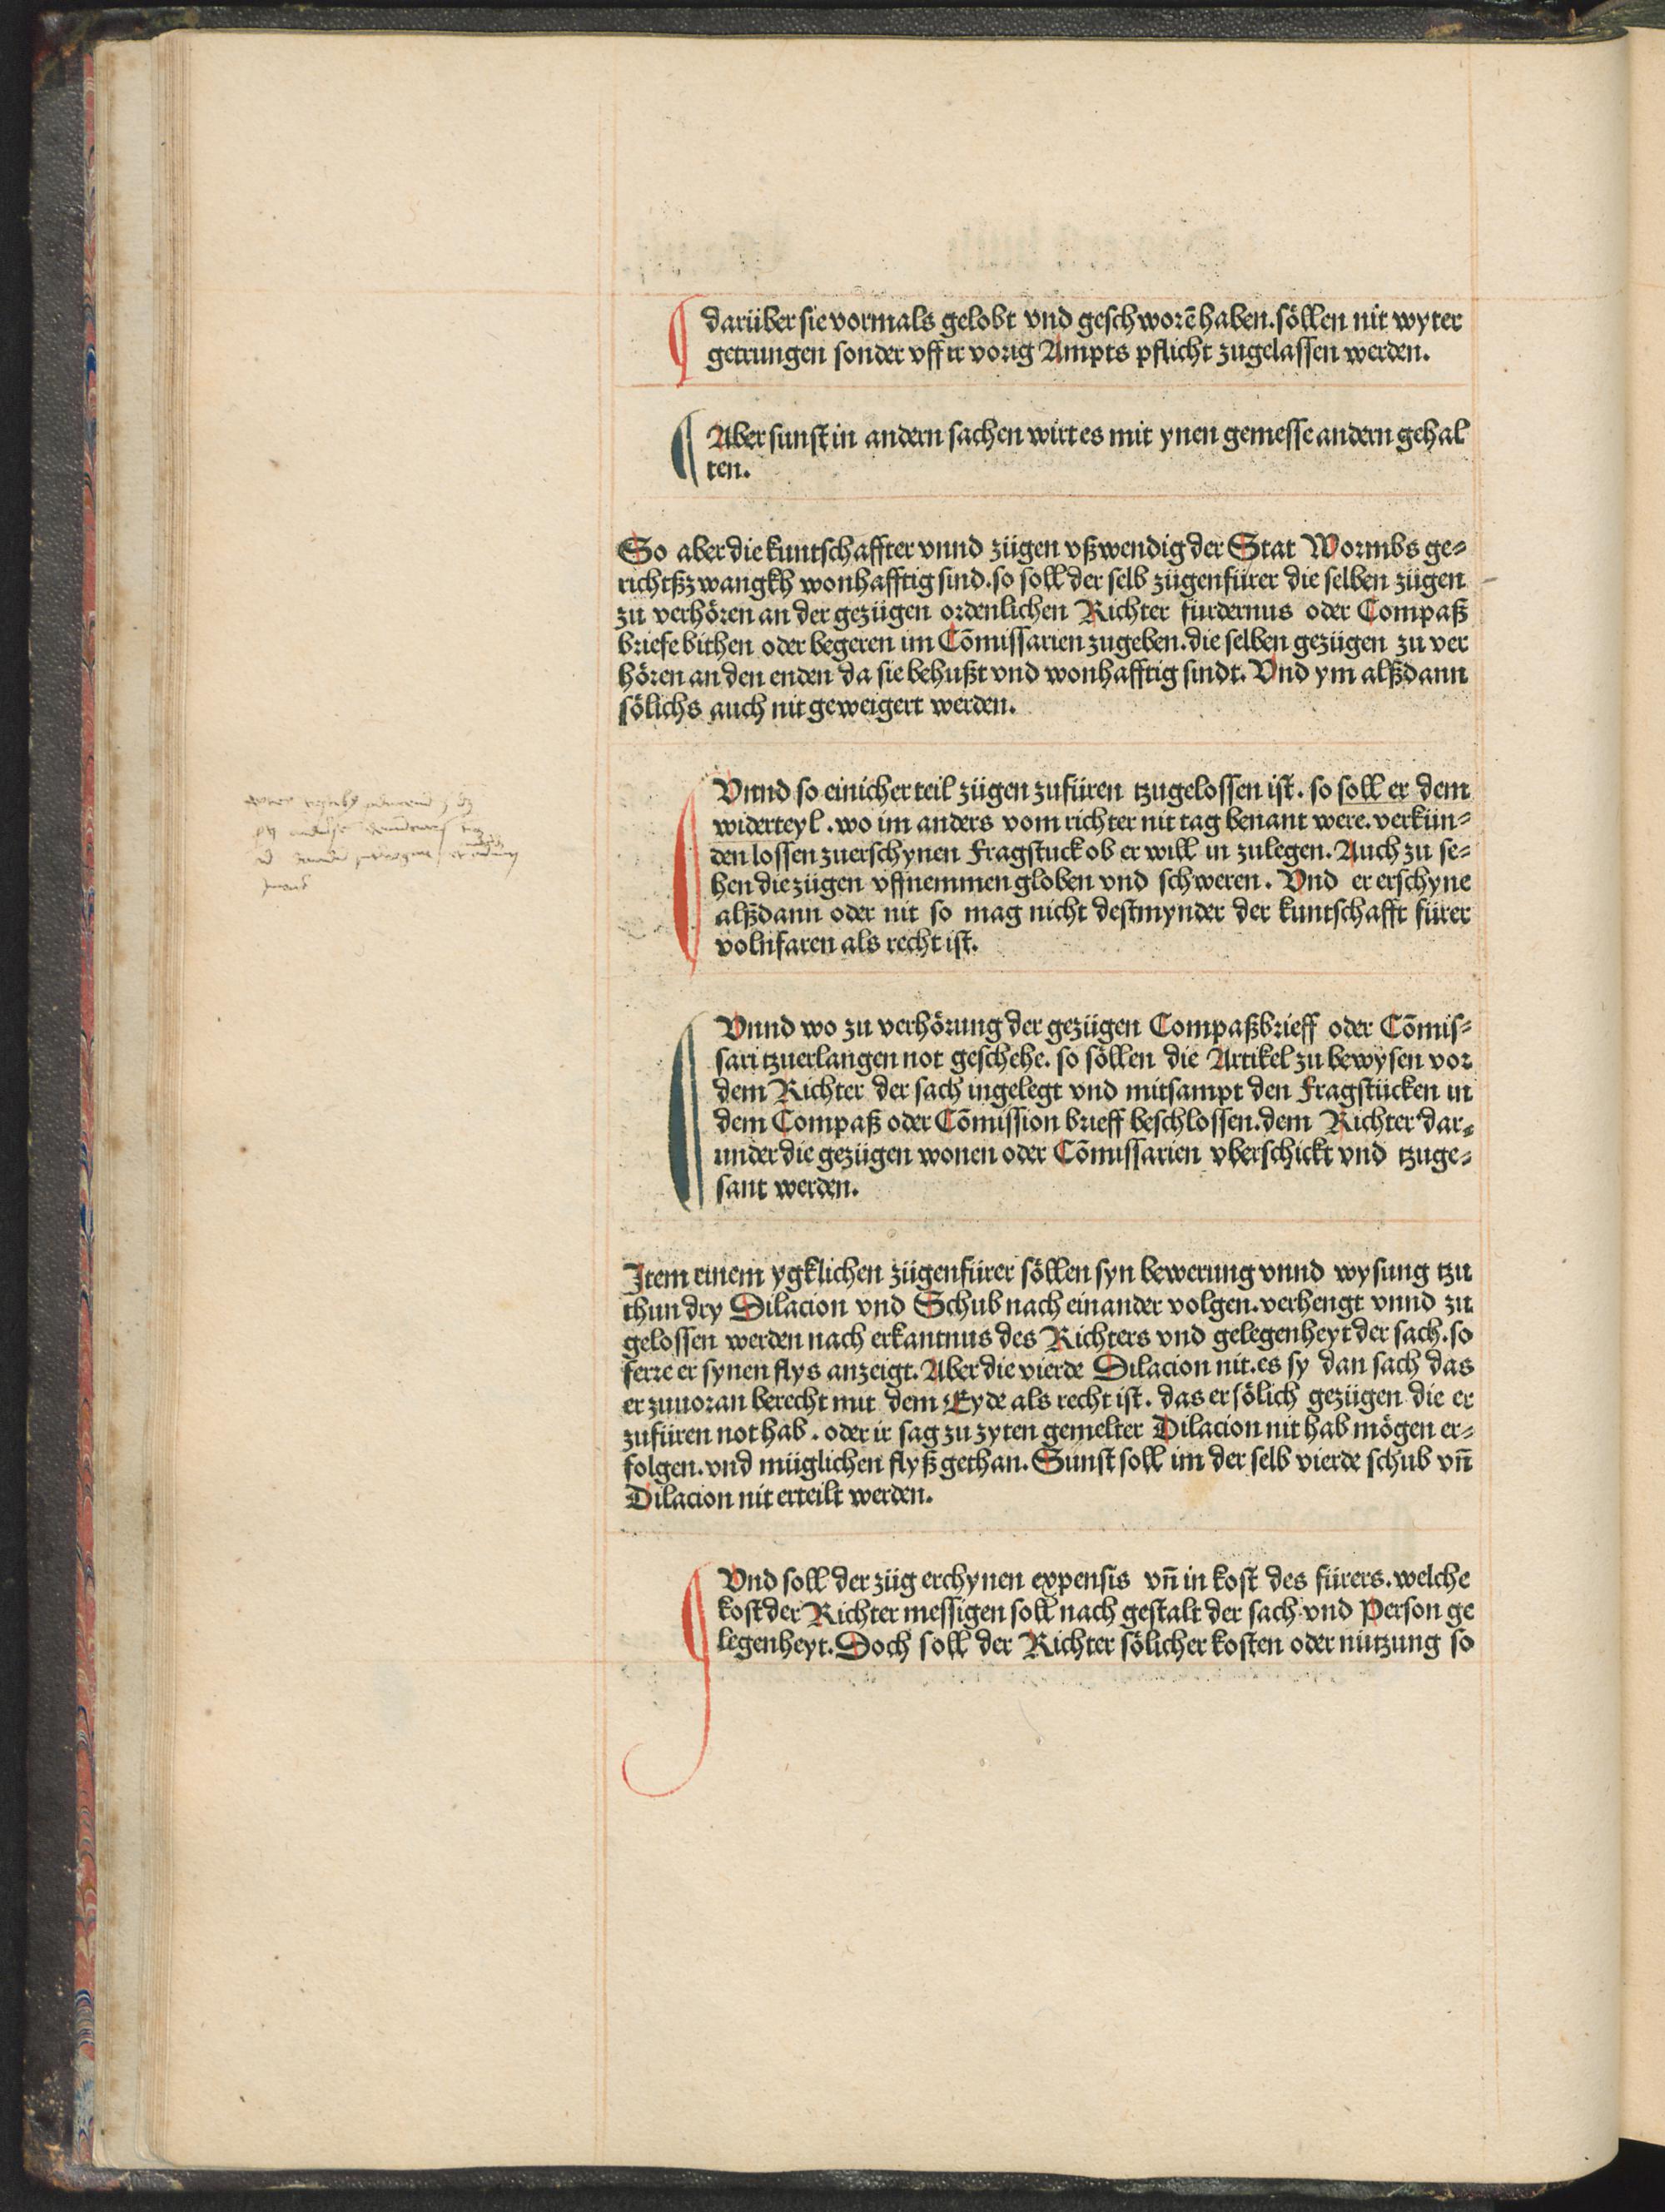 darüber sie vormals gelobt vnd geschworē haben. söllen nit wyter
getrungen sonder vff ir vorig Ampts pflicht zugelassen werden.
Aber sunst in andern sachen wirt es mit ynen gemesse andern gehal
ten.
So aber die kuntschaffter vnnd zügen vßwendig der Stat Wormbs ge⸗
richtßzwangkh wonhafftig sind. so soll der selb zügenfürer die selben zügen
zu verhören an der gezügen ordenlichen Richter fürdernus oder Compaß
briefe bithen oder begeren im Cōmissarien zugeben. die selben gezügen zu ver
hören an den enden da sie behußt vnd wonhafftig sindt. Vnd ym alßdann
sölichs auch nit geweigert werden.
Vnnd so einicher teil zügen zufüren tzugelossen ist. so soll er dem
widerteyl. wo im anders vom richter nit tag benant were. verkün⸗
den lossen zuerschynen Fragstuck ob er will in zulegen. Auch zu se⸗
hen die zügen vffnemmen globen vnd schweren. Vnd er erschyne
alßdann oder nit so mag nicht destmynder der kuntschafft fürer
volnfaren als recht ist.
Vnnd wo zu verhörung der gezügen Compaßbrieff oder Cōmis⸗
sari tzuerlangen not geschehe. so söllen die Artikel zu bewysen vor
dem Richter der sach ingelegt vnd mitsampt den Fragstücken in
dem Compaß oder Cōmission brieff beschlossen. dem Richter dar⸗
under die gezügen wonen oder Cōmissarien vberschickt vnd tzuge⸗
sant werden.
Item einem ygklichen zügenfürer söllen syn bewerung vnnd wysung tzu
thun dry Dilacion vnd Schub nach einander volgen. verhengt vnnd zu
gelossen werden nach erkantnus des Richters vnd gelegenheyt der sach. so
ferre er synen flys anzeigt. Aber die vierde Dilacion nit. es sy dan sach das
er zuuoran berecht mit dem Eyde als recht ist. das er sölich gezügen die er
zufüren not hab. oder ir sag zu zyten gemelter Dilacion nit hab mögen er⸗
folgen. vnd müglichen flyß gethan. Sunst soll im der selb vierde schub vn̄
Dilacion nit erteilt werden.
Vnd soll der züg erchynen expensis vn̄ in kost des fürers. welche
kost der Richter messigen soll nach gestalt der sach vnd Person ge
legenheyt. Doch soll der Richter sölicher kosten oder nützung so